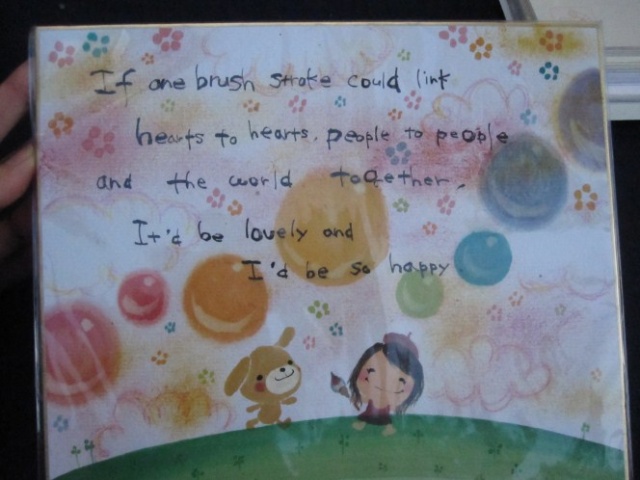 If one brush stroke could link
hearts to hearts, people to people
and the world together,
It'd be lovely and
I'd be so happy